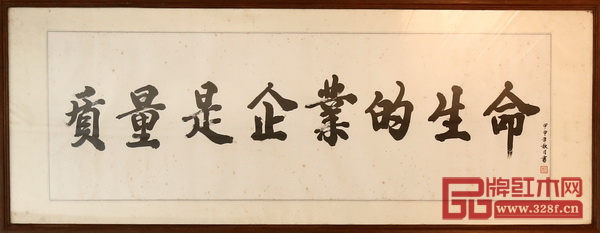 質量是企業的生命
品牌红木网
www.328f.cn